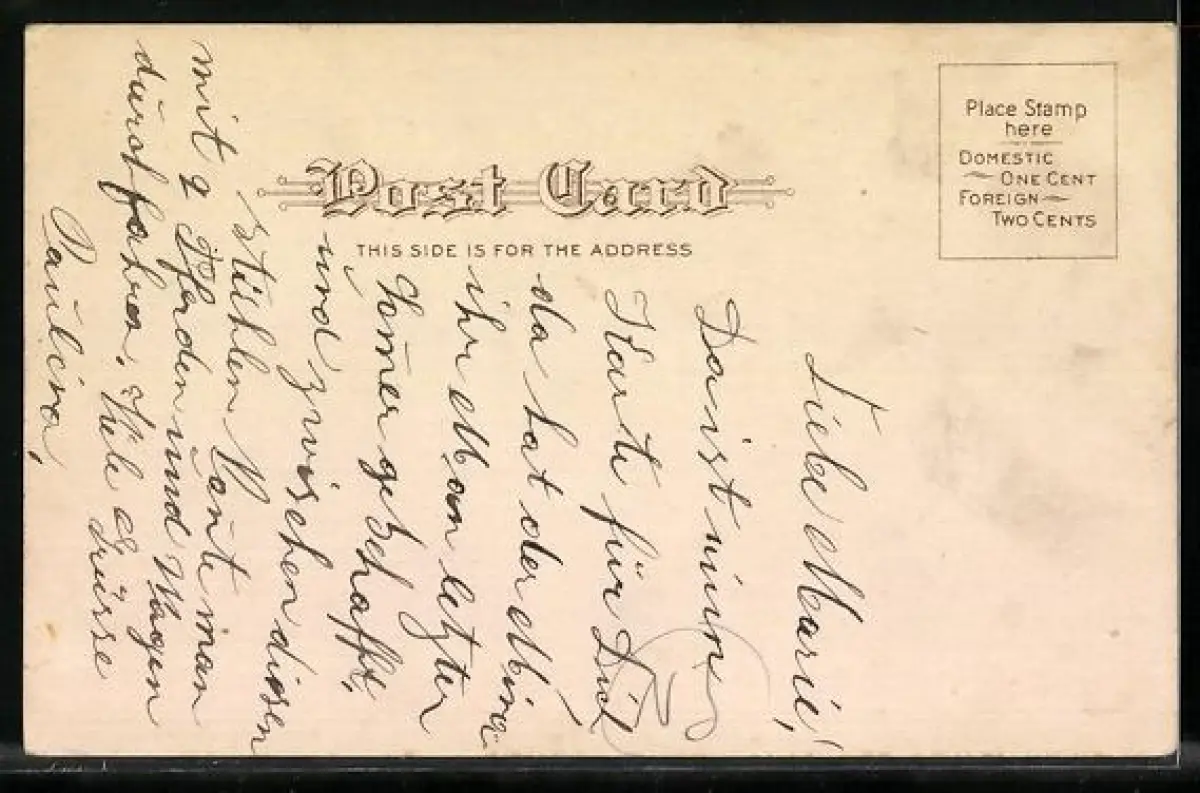 Post Card
THIS SIDE IS FOR THE ADDRESS
Place Stamp
here
DOMESTIC
ONE CENT
FOREIGN
TWO CENTS
Liebe Marie!
Da ist nun
Karte für Dich
da hat der
ihr Man letzter
Somer geschafft,
und zwischen diesen
Stühlen konte man
mit 2 Pferden und Wagen
durchfahren. Viele Grüsse
Paulina,